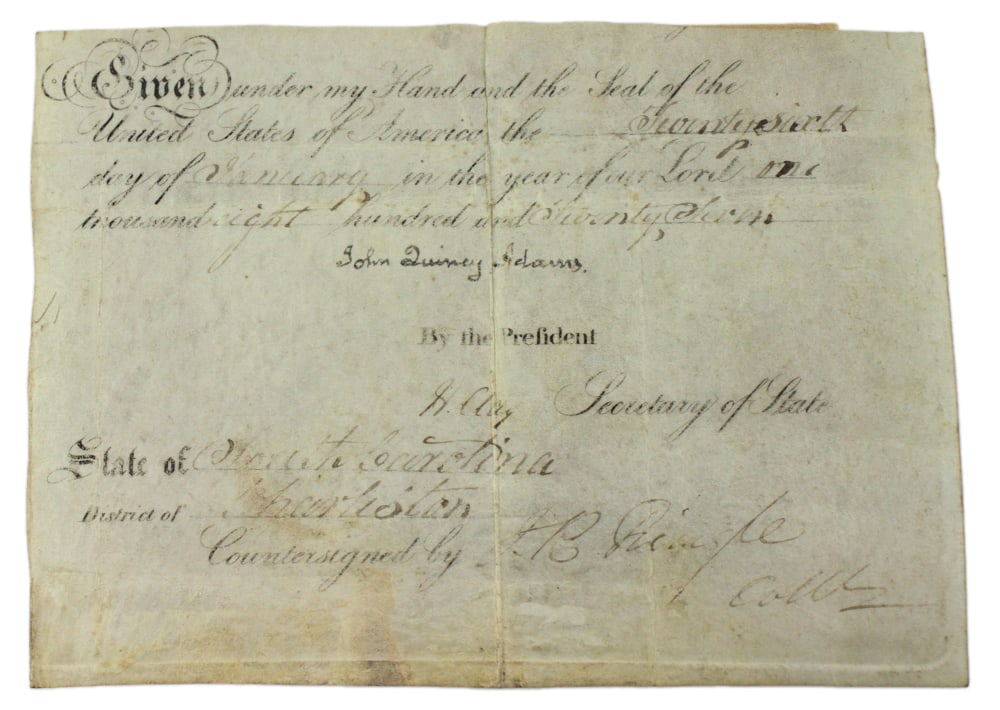 Given under my Hand and the Seal of the
United States of America the Twenty sixth
day of January in the year of our Lord one
thousand eight hundred and Twenty Seven
John Quincy Adams.
By the Preſident
H. Clay Secretary of State
State of South Carolina
District of Charleston
Countersigned by Pringle
Collr